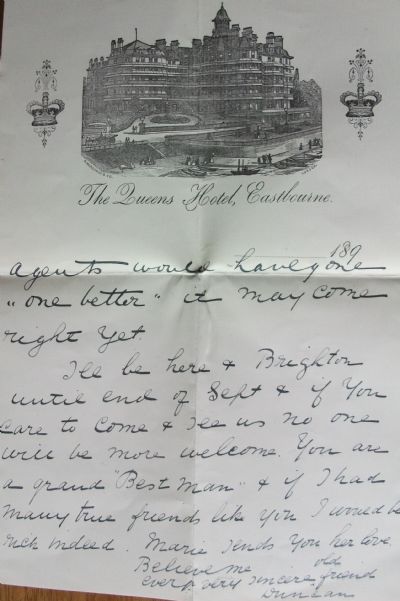 The Queens Hotel, Eastbourne.
189
agents would have gone
"one better" it may come
right yet.
I'll be here & Brighton
until end of Sept & if you
care to come & see us no one
will be more welcome. You are
a grand "Best Man" & if I had
many true friends like you I would be
rich indeed. Marie sends you her love.
Believe me old
ever very sincere friend
Duncan